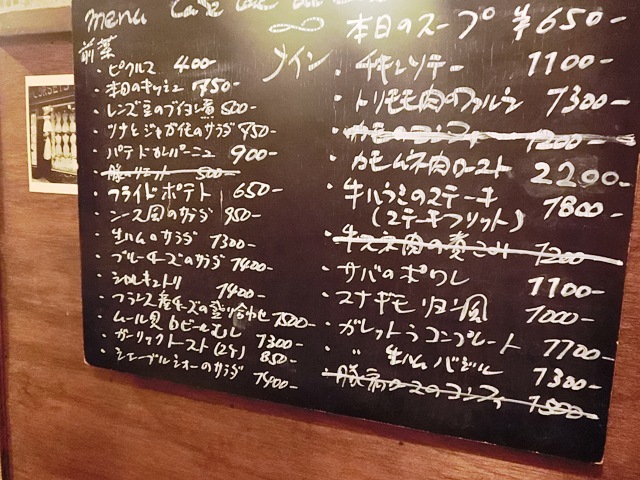 menu Café
前菜
・ピクルス 400-
・本日のキッシュ 750-
・レンズ豆のブイヨン煮 500-
・ツナとジャガ芋のサラダ 750-
・パテドカンパーニュ 900-
・豚リエット 500-
・フライドポテト 650-
・ニース風のサラダ 950-
・生ハムのサラダ 1300-
・ブルーチーズのサラダ 1400-
・シャルキュトリ 1400-
・フランス産チーズの盛り合わせ 1500-
・ムール貝白ビールむし 1300-
・ガーリックトースト(2ケ) 850-
・シェーブルショーのサラダ 1400-
本日のスープ ¥650-
メイン
・チキンソテー 1100-
・トリモモ肉のファルシ 1300-
・カモのコンフィ 1200-
・カモムネ肉ロースト 2200-
・牛ハラミのステーキ 1800-
(ステーキフリット)
・牛スネ肉の煮こみ 1200-
・サバのポワレ 1100-
・スナギモ リヨン風 1000-
・ガレット コンプレート 1100-
・〃 生ハムバジル 1300-
・豚肩ロースのコンフィ 1500-